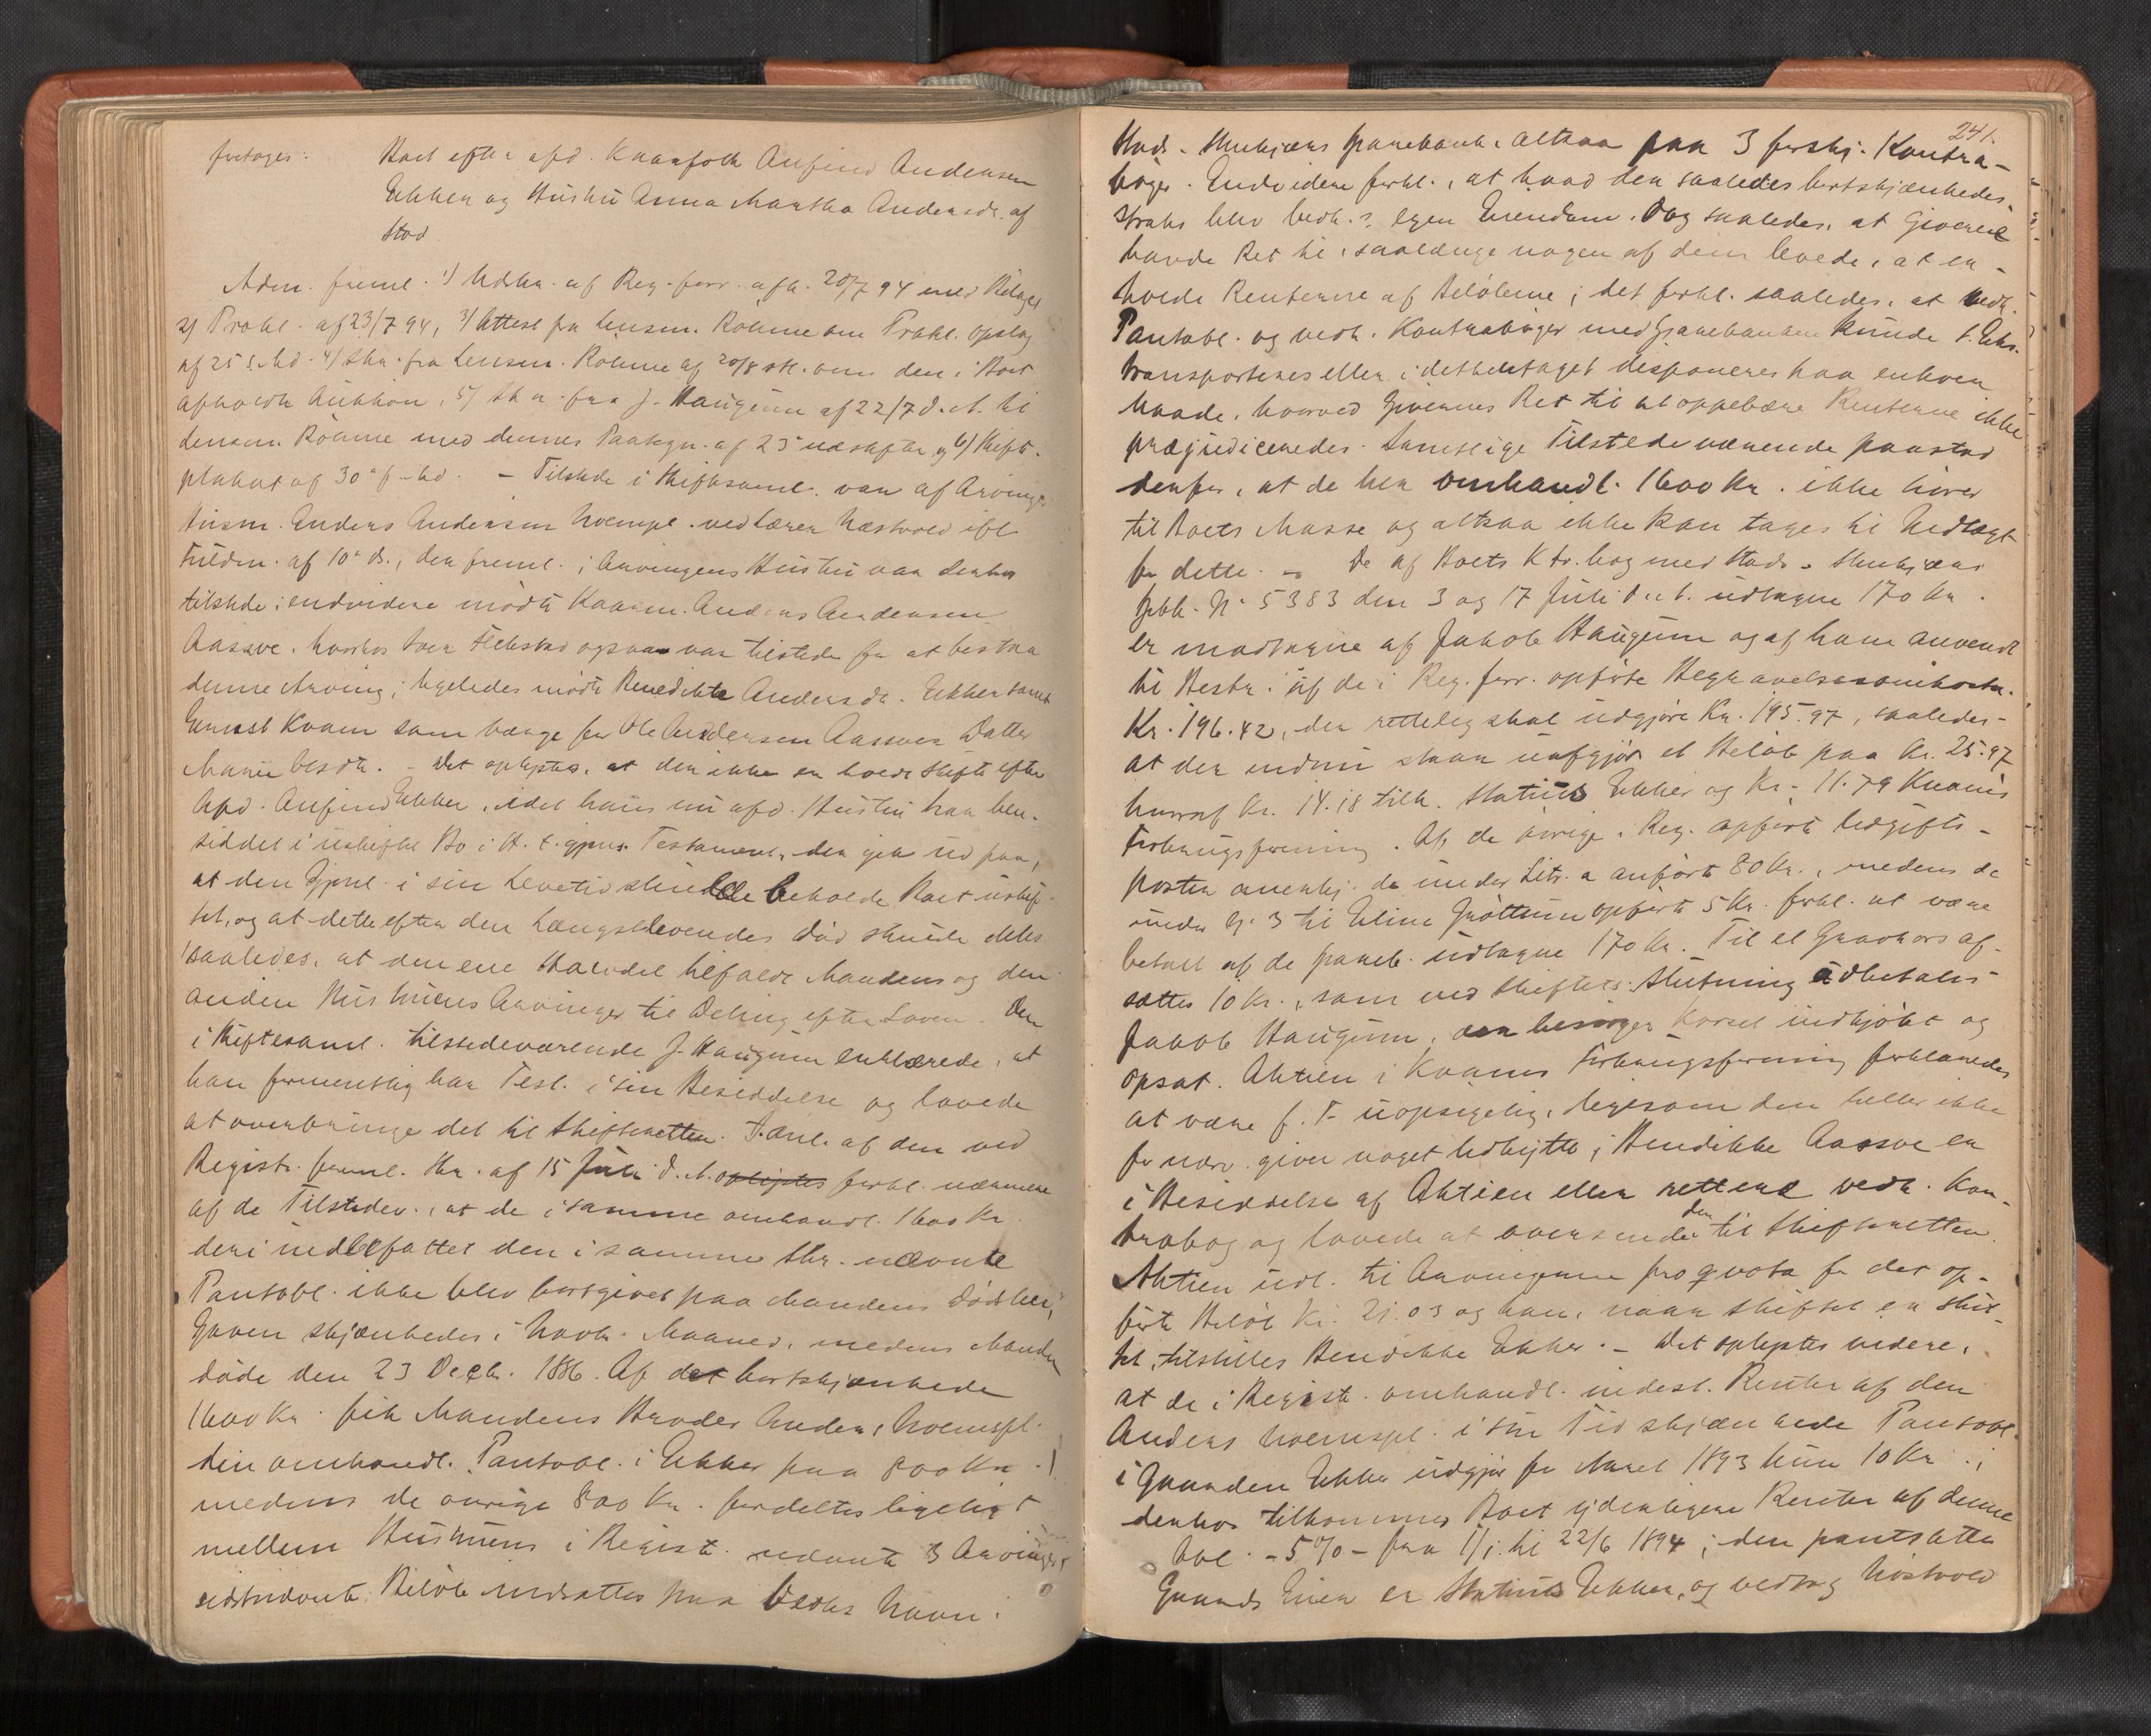 foretoges: Boet efter afd. Kaarfolk Anfind Andersen
Ekker og Hustru Anna Martha Andersdr. af
Stod
Adm. freml. 1) Udskr. af Reg. forr. afh. 20/7 94 med Bilager
2) Prokl. af 23/7 94, 3) Attest fra Lensm. Røhme om Prokl. opslag
af 25 s. Md. 4) Skr. fra Lensm. Røhme af 20/8 om den i Boet
afholdte Auktion, 5) Skr. fra J. Haugum af 22/7 d. A. til
Lensm. Røhme med dennes Paategn. af 23 og 6) Skifte-
plakat af 30 f. Md. – Tilstede i Skiftesaml. var af Arvinger
Husm. Anders Andersen Hvempl. ved Lærer Næstvold ifl.
Fuldm. af 10 ds., der freml.; Arvingens Hustru var derhos
tilstede; endvidere mødte Kaarm. Anders Andersen
Aassve, hvorhos Iver Elekstad ogsaa var tilstede for at bestaa
denne Arving; ligeledes mødte Benedikte Andersdr. Ekker samt
Ernst Kvam som Værge for Ole Andersen Aassves Datter
Marie besdt. – Det oplystes, at der ikke er holdt Skifte efter
Afd. Anfind Ekker, idet hans nu afd. Hustru har hen-
siddet i uskiftet Bo i H. t. gjens. Testament, der gik ud paa,
at den Gjenl. i sin Levetid skulde beholde Boet uskif-
tet, og at dette efter den Længstlevendes Død skulde deles
saaledes, at den ene Halvdel tilfaldt Mandens og den
anden Hustruens Arvinger til Deling efter Loven. Den
i Skiftesaml. tilstedeværende J. Haugum erklærede, at
han formentlig har Test. i sin Besiddelse og lovede
at overbringe det til Skifteretten. I Anl. af den ved
Registr. freml. Skr. af 15 Juli d. A. oplystes forkl. nærmere
af de Tilstedev., at de i samme omhandl. 1600 Kr.
deri indbefattet den i samme Skr. nævnte
Pantobl. ikke blev bortgivet paa Mandens Dødsleie,
Gaven skjænkedes i Novbr. Maaned, medens Manden
døde den 23 Decbr. 1886. Af det bortskjænkede
1600 Kr. fik Mandens Broder Anders Hvempl.
den omhandl. Pantobl. i Ekker paa 800 Kr.
medens de øvrige 800 Kr. fordeltes ligeligt
mellem Hustruens i Regist. nævnte 3 Arvinger,
sidstnævnte Beløb indsattes paa Vedks Navn i
241.
Stods - Sparebank, altsaa paa 3 forskj. Kontra-
bøger. Endvidere forkl., at hvad der saaledes bortskjænkedes,
straks blev vedk.s egen Eiendom. Dog saaledes, at Giverne
havde Ret til, saalænge nogen af dem levede, at er-
holde Renterne af Beløbene; det forkl. saaledes, at vedk.
Pantobl. og vedk. Kontrabøger med Sparebanken kunde f. Eks.
transporteres eller i det hele taget disponeres paa enhver
Maade, hvorved Givernes Ret til at oppebære Renterne ikke
præjudiceredes. Samtlige Tilstedeværende paastod
derfor, at de her omhandl. 1600 Kr. ikke hører
til Boets Masse og altsaa ikke kan tages til Indtægt
for dette. – De af Boets Ktr. bog med Stods -
Spbk. No 5383 den 3 og 17 Juli d. A. udtagne 170 Kr.
er modtagne af Jakob Haugum og af ham anvendt
til Bestr. af de i Reg. forr. opførte Begravelsesomkostn.
Kr. 196.42, der rettelig skal udgjøre Kr. 195.97, saaledes
at der endnu staar uafgjort et Beløb paa Kr. 25.97
hvoraf Kr. 14.18 tilk. Statius Ekker og Kr. 11.79 Kvams
Forbrugsforening. Af de øvrige i Reg. opførte Udgifts-
poster anerkj. de under Litr. a anført 80 Kr., medens de
under g. 3 til Eline Grøttum opførte 5 Kr. forkl. at være
betalt af de spareb. udtagne 170 Kr. Til et Gravkors af-
sættes 10 Kr., som ved Skiftets Slutning udbetales
Jakob Haugum, der besørger Korset indkjøbt og
opsat. Aktien i Kvams Forbrugsforening forklaredes
at være f. T. uopsigelig, ligesom den heller ikke
for nærv. giver noget Udbytte; Bendikke Aassve er
i Besiddelse af Aktien eller rettere vedk. Kon-
trabog og lovede at oversende den til Skifteretten.
Aktien udl. til Arvingerne pro qvota for det op-
førte Beløb Kr. 21.03 og kan, naar Skiftet er slut-
tet, tilstilles Bendikke Ekker. – Det oplystes videre,
at de i Registr. omhandl. indest. Renter af den
Anders Hvempl. i sin Tid skjænkede Pantobl.
i Gaarden Ekker udgjør for Aaret 1893 kun 10 Kr.;
derhos tilkommer Boet yderligere Renter af denne
Obl. – 5 % – fra 1/1 til 22/6 1894; den pantsatte
Gaards Eier er Statius Ekker, og vedtog Næstvold